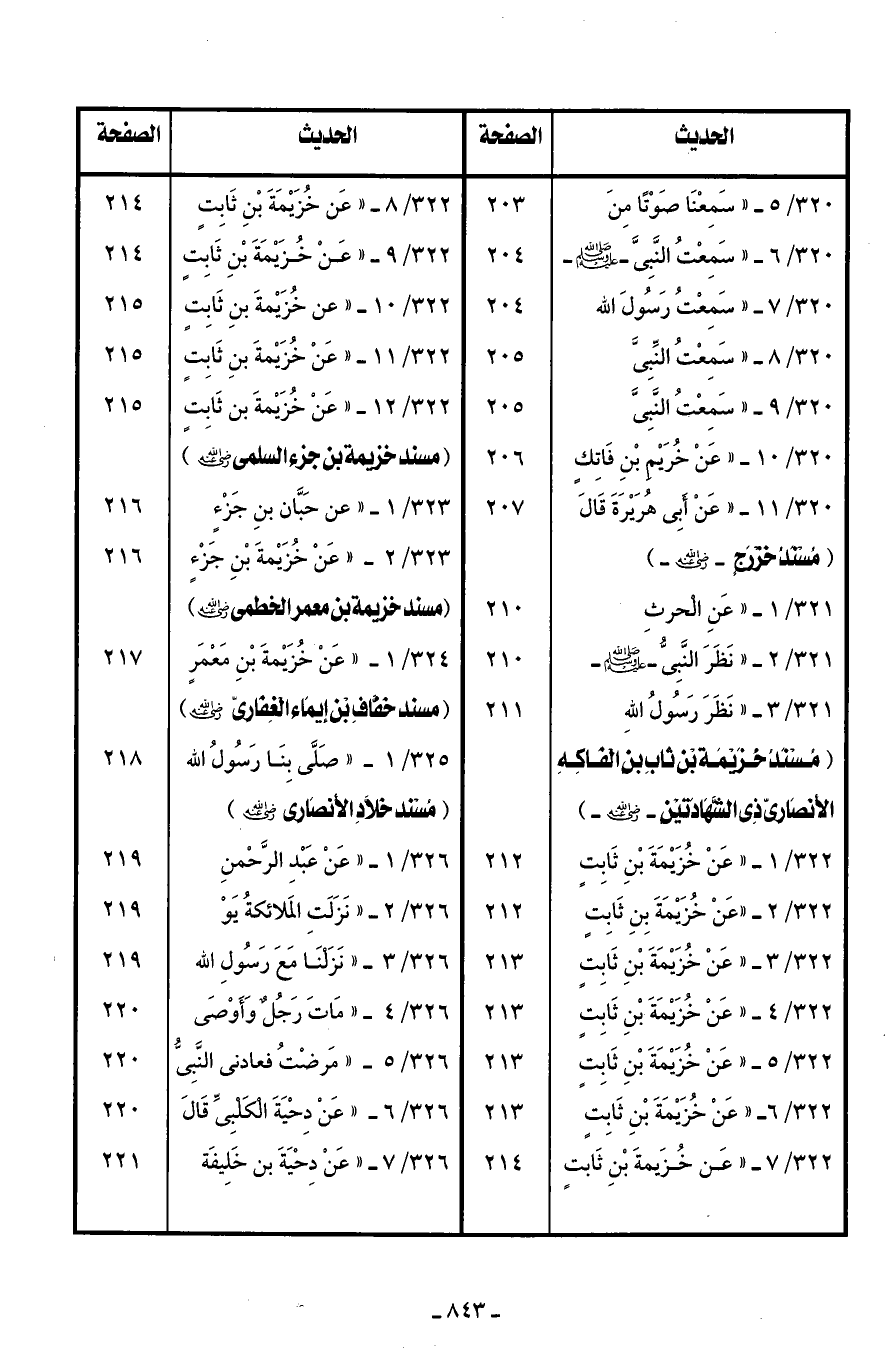 الحديث الصفحة
٣٢٠/ ٥ ـ « سَمِعْنَا صَوْتًا مِنَ ٢٠٣
٣٢٠/ ٦ ـ « سَمِعْتُ النَّبِىَّ ـ ﷺ ـ ٢٠٤
٣٢٠/ ٧ ـ « سَمِعْتُ رَسُولَ الله ٢٠٤
٣٢٠/ ٨ ـ « سَمِعْتُ النَّبِىَّ ٢٠٥
٣٢٠/ ٩ ـ « سَمِعْتُ النَّبِىَّ ٢٠٥
٣٢٠/ ١٠ ـ « عَنْ خُرَيْمِ بْنِ فَاتِكٍ ٢٠٦
٣٢٠/ ١١ ـ « عَنْ أَبِى هُرَيْرَةَ قَالَ ٢٠٧
( مُسْنَدُ خَزْرَجٍ ـ رضي الله عنه ـ )
٣٢١/ ١ ـ « عَنِ الْحرثِ ٢١٠
٣٢١/ ٢ ـ « نَظَرَ النَّبِىُّ ـ ﷺ ـ ٢١٠
٣٢١/ ٣ ـ « نَظَرَ رَسُولُ اللهِ ٢١١
( مُسْنَدُ خُزَيْمَةَ بْنِ ثابِ بنِ الفَاكِهِ
الأنصارىِّ ذِى الشَّهَادَتَيْنِ ـ رضي الله عنه ـ )
٣٢٢/ ١ ـ « عَنْ خُزَيْمَةَ بْنِ ثَابِتٍ ٢١٢
٣٢٢/ ٢ ـ «عَنْ خُزَيْمَةَ بنِ ثَابِتٍ ٢١٢
٣٢٢/ ٣ ـ « عَنْ خُزَيْمَةَ بْنِ ثَابِتٍ ٢١٣
٣٢٢/ ٤ ـ « عَنْ خُزَيْمَةَ بْنِ ثَابِتٍ ٢١٣
٣٢٢/ ٥ ـ « عَنْ خُزَيْمَةَ بْنِ ثَابِتٍ ٢١٣
٣٢٢/ ٦ـ « عَنْ خُزَيْمَةَ بْنِ ثَابِتٍ ٢١٣
٣٢٢/ ٧ ـ « عَـن خُـزَيمةَ بْنِ ثَابتٍ ٢١٤
الحديث الصفحة
٣٢٢/ ٨ ـ « عَن خُزَيْمَةَ بْنِ ثَابِتٍ ٢١٤
٣٢٢/ ٩ ـ « عَـنْ خُـزَيْمةَ بْنِ ثَابتٍ ٢١٤
٣٢٢/ ١٠ ـ « عن خُزَيْمةَ بنِ ثَابتٍ ٢١٥
٣٢٢/ ١١ ـ « عَنْ خُزَيْمةَ بنِ ثَابتٍ ٢١٥
٣٢٢/ ١٢ ـ « عَنْ خُزَيْمةَ بن ثَابتٍ ٢١٥
( مسند خزيمة بن جزء السلمى رضي الله عنه )
٣٢٣/ ١ ـ « عن حَبَّان بنِ جَزْءٍ ٢١٦
٣٢٣/ ٢ ـ « عَنْ خُزَيْمةَ بْنِ جَزْءٍ ٢١٦
(مسند خزيمة بن معمر الخطمى رضي الله عنه )
٣٢٤/ ١ ـ « عَنْ خُزَيْمةَ بْنِ مَعْمَرٍ ٢١٧
( مسند خفَّاف بْن إيماء الغفارىّ رضي الله عنه )
٣٢٥/ ١ ـ « صَلَّى بِنَـا رَسُولُ الله ٢١٨
( مُسْنَد خلادِ الأنصارى رضي الله عنه )
٣٢٦/ ١ ـ « عَنْ عَبْدِ الرَّحْمنِ ٢١٩
٣٢٦/ ٢ ـ « نَزَلَتِ المَلائكةُ يَوْ ٢١٩
٣٢٦/ ٣ ـ « نَزَلْنَـا مَعَ رَسُولِ الله ٢١٩
٣٢٦/ ٤ ـ « مَاتَ رَجُلٌ وَأَوْصَى ٢٢٠
٣٢٦/ ٥ ـ « مَرِضْتُ فعادنى النَّبِىُّ ٢٢٠
٣٢٦/ ٦ ـ « عَنْ دِحْيَةَ الكَلْبِىِّ قَالَ ٢٢٠
٣٢٦/ ٧ ـ « عَنْ دِحْيَةَ بن خَلِيفَة ٢٢١
ـ ٨٤٣ ـ